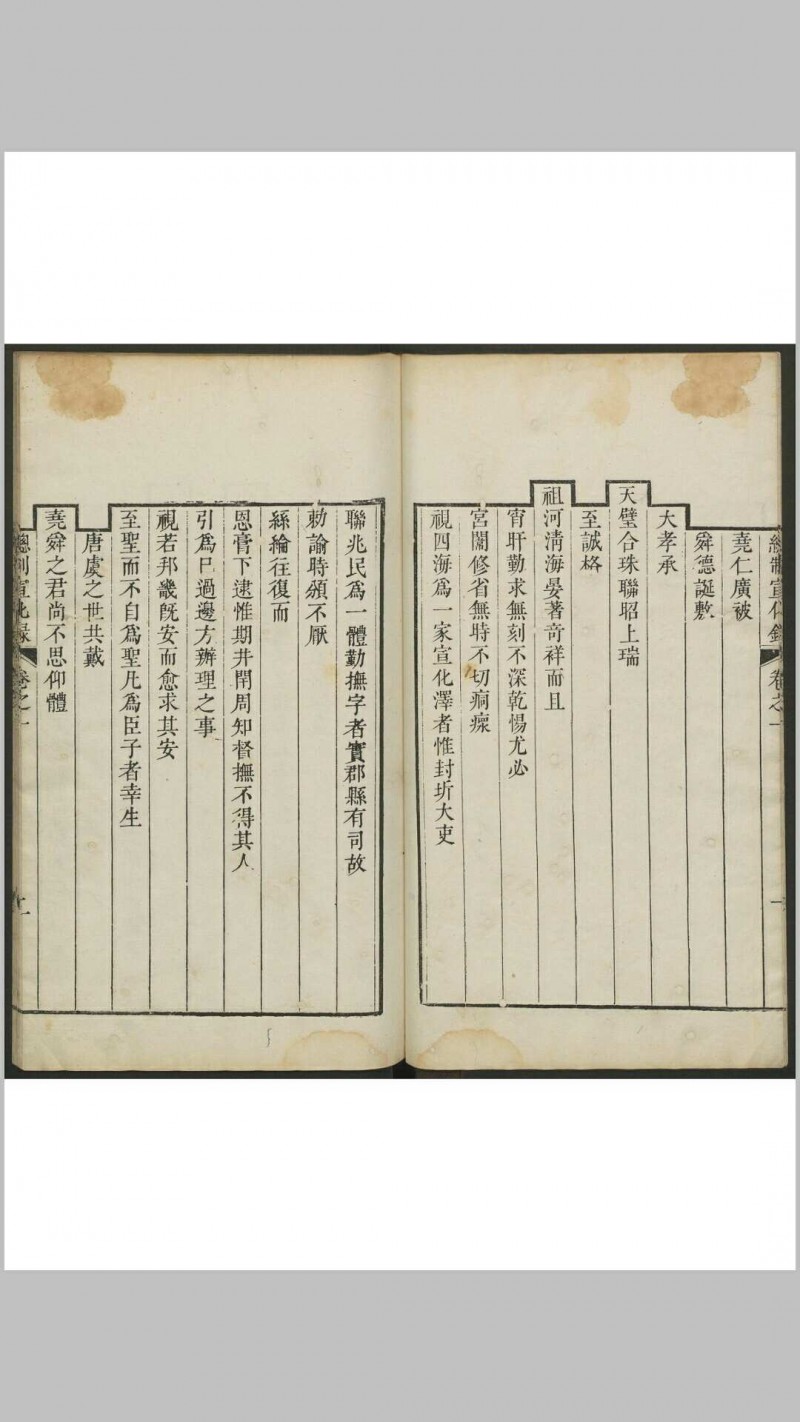 總制宣化錄 卷之一 一
堯仁廣被
舜德誕敷
大孝承
天璧合珠聯昭上瑞
至誠格
祖河淸海晏著竒祥而且
宵旰勤求無刻不深乾惕尤必
宮闈修省無時不切痌瘝
視四海爲一家宣化澤者惟封圻大吏
聯兆民爲一體勤撫字者實郡縣有司故
勅諭時頒不厭
絲綸往復而
恩膏下逮惟期井閈周知督撫不得其人
引爲巳過邊方辦理之事
視若邦畿旣安而愈求其安
至聖而不自爲聖凡爲臣子者幸生
唐虞之世共戴
堯舜之君尚不思仰體
總制宣化錄 卷之一